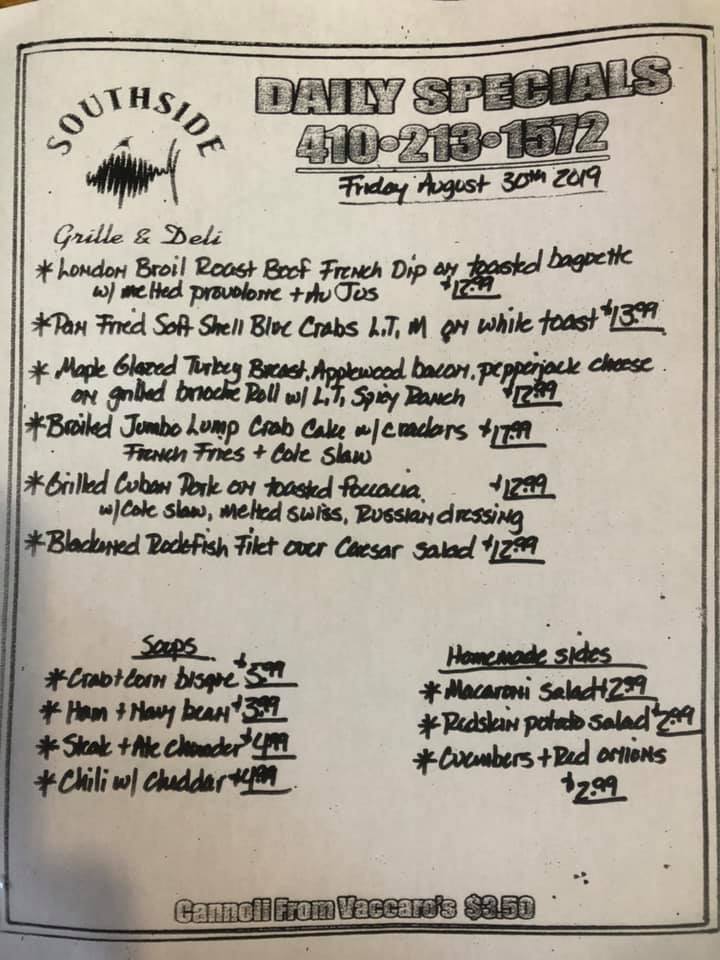 SOUTHSIDE
Grille & Deli
DAILY SPECIALS
410•213•1572
Friday August 30th 2019
* London Broil Roast Beef French Dip on toasted baguette
w/ melted provolone + Au Jus $12.99
* Pan Fried Soft Shell Blue Crabs L,T, M on white toast $13.99
* Maple Glazed Turkey Breast, Applewood bacon, pepperjack cheese
on grilled brioche Roll w/ L,T, Spicy Ranch $12.99
* Broiled Jumbo Lump Crab Cake w/ crackers $17.99
French Fries + Cole Slaw
* Grilled Cuban Pork on toasted Foccacia $12.99
w/ Cole Slaw, melted swiss, Russian dressing
* Blackened Rockfish Filet over Caesar salad $12.99
Soups
* Crab + Corn bisque $5.99
* Ham + Navy bean $3.99
* Steak + Ale chowder $4.99
* Chili w/ Cheddar $4.99
Homemade sides
* Macaroni salad $2.99
* Redskin potato salad $2.99
* Cucumbers + Red onions
$2.99
Cannoli From Vaccaro's $3.50